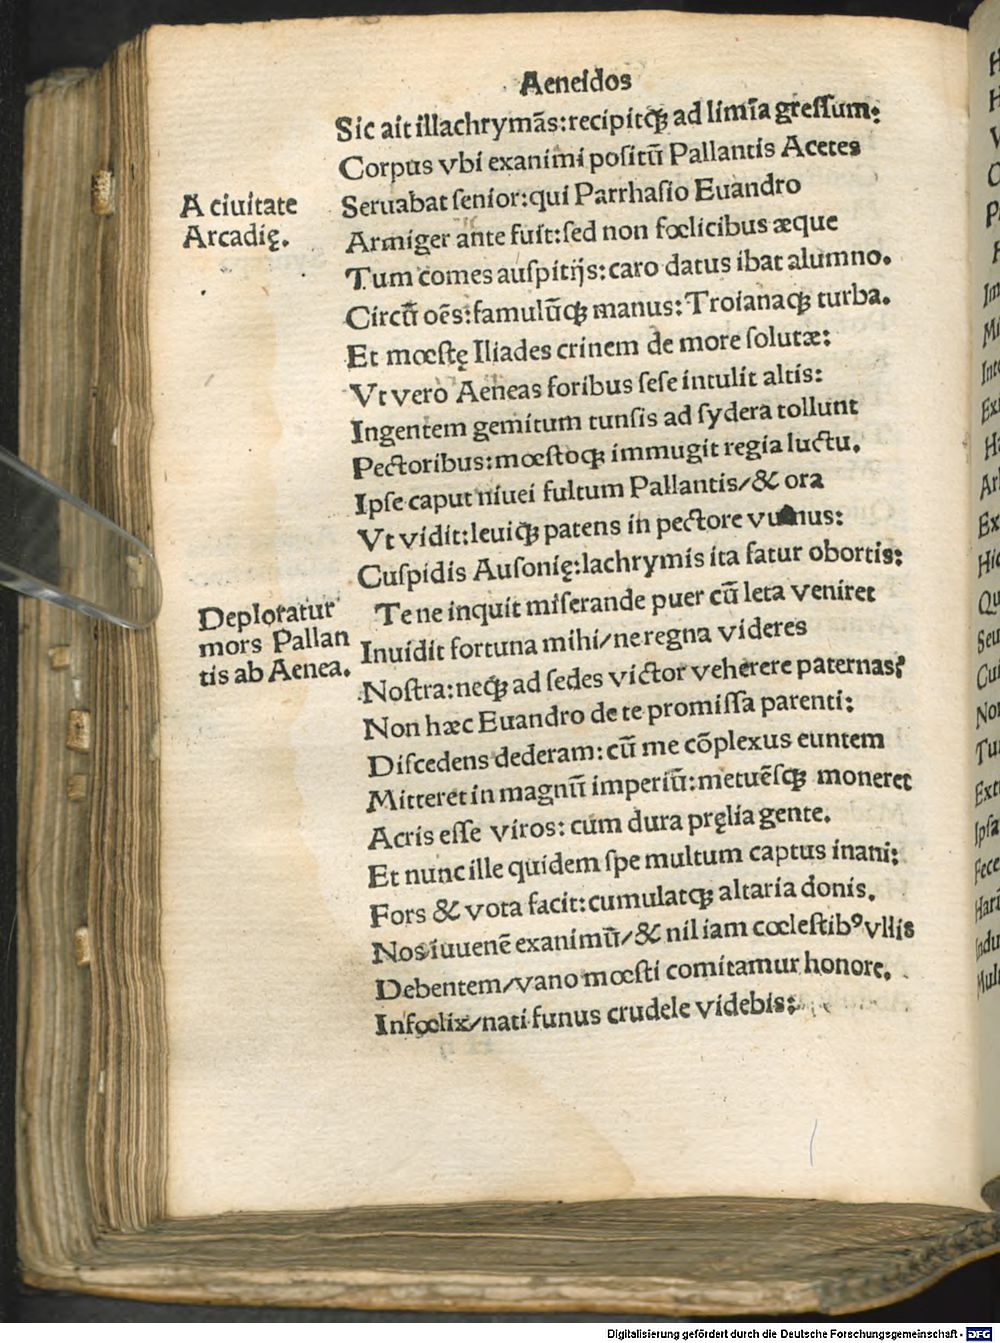 Aeneidos
Sic ait illachrymãs: recipitqꝫ ad limĩa greſſum:
Corpus vbi exanimi poſitũ Pallantis Acetes
A ciuitate
Arcadię.
Seruabat ſenior: qui Parrhaſio Euandro
Armiger ante fuit: ſed non fœlicibus æque
Tum comes auſpitijs: caro datus ibat alumno.
Circũ oẽs: famulũqꝫ manus: Troianaqꝫ turba.
Et mœſtę Iliades crinem de more ſolutæ:
Vt vero Aeneas foribus ſeſe intulit altis:
Ingentem gemitum tunſis ad ſydera tollunt
Pectoribus: mœſtoqꝫ immugit regia luctu.
Ipſe caput niuei fultum Pallantis/ & ora
Vt vidit: leuiqꝫ patens in pectore vulnus:
Cuſpidis Auſonię: lachrymis ita fatur obortis:
Deploratur
mors Pallan
tis ab Aenea.
Te ne inquit miſerande puer cũ leta veniret
Inuidit fortuna mihi/ ne regna videres
Noſtra: neqꝫ ad ſedes victor veherere paternas?
Non hæc Euandro de te promiſſa parenti:
Diſcedens dederam: cũ me cõplexus euntem
Mitteret in magnũ imperiũ: metuẽſqꝫ moneret
Acris eſſe viros: cum dura pręlia gente.
Et nunc ille quidem ſpe multum captus inani:
Fors & vota facit: cumulatqꝫ altaria donis.
Nos iuuenẽ exanimũ/ & nil iam cœleſtibꝰ vllis
Debentem/ vano mœſti comitamur honore.
Infœlix/ nati funus crudele videbis:
Digitalisierung gefördert durch die Deutsche Forschungsgemeinschaft - DFG